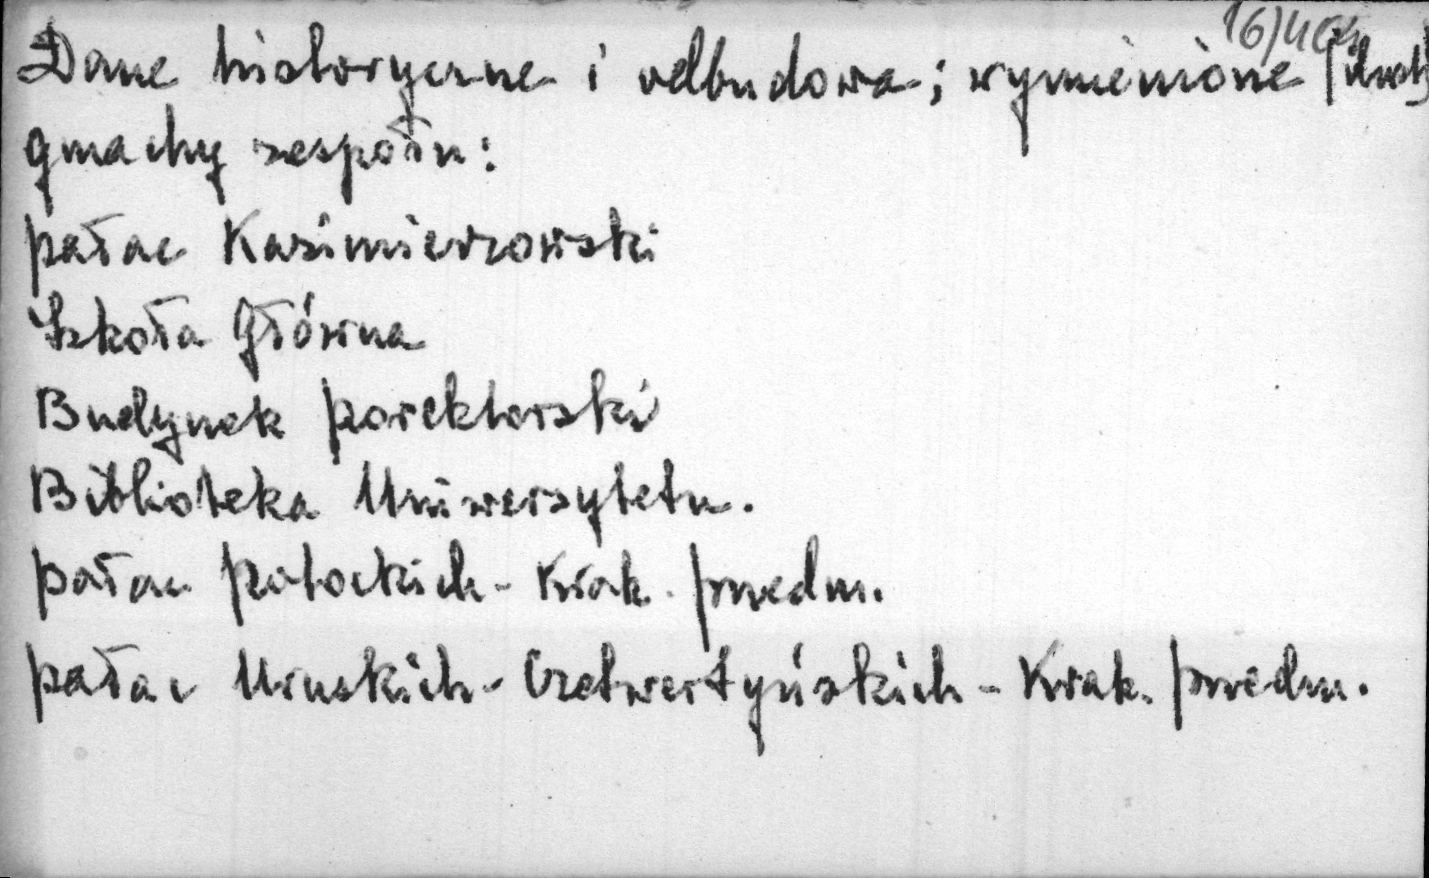 Dane historyczne i odbudowa; wymienione (ilustr.)
gmachy zespołu:
pałac Kazimierzowski
Szkoła Główna
Budynek porektorski
Biblioteka Uniwersytetu.
pałac Potockich - Krak. przedm.
pałac Uruskich - Czetwertyńskich - Krak. przedm.